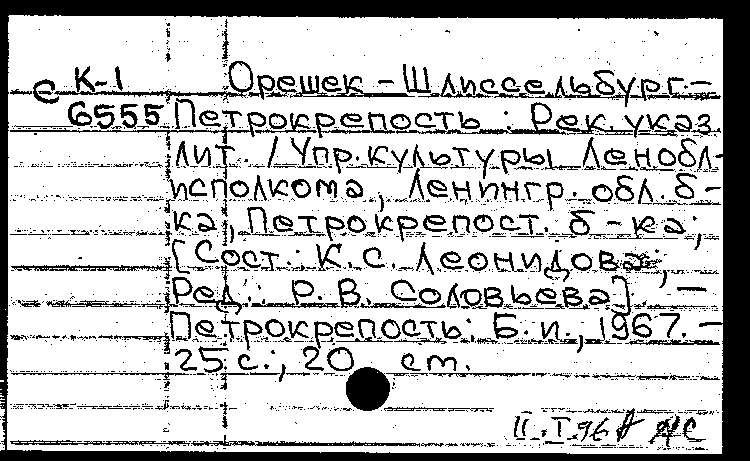 с К-1 Орешек - Шлиссельбург -
6555 Петрокрепость : Рек. указ.
лит. / Упр. культуры Ленобл-
исполкома, Ленингр. обл. б-
ка, Петрокрепост. б-ка;
[Сост.: К.С. Леонидова;
Ред.: Р.В. Соловьева]. —
Петрокрепость: Б.и., 1967. —
25 с.; 20 см.
II.I.96